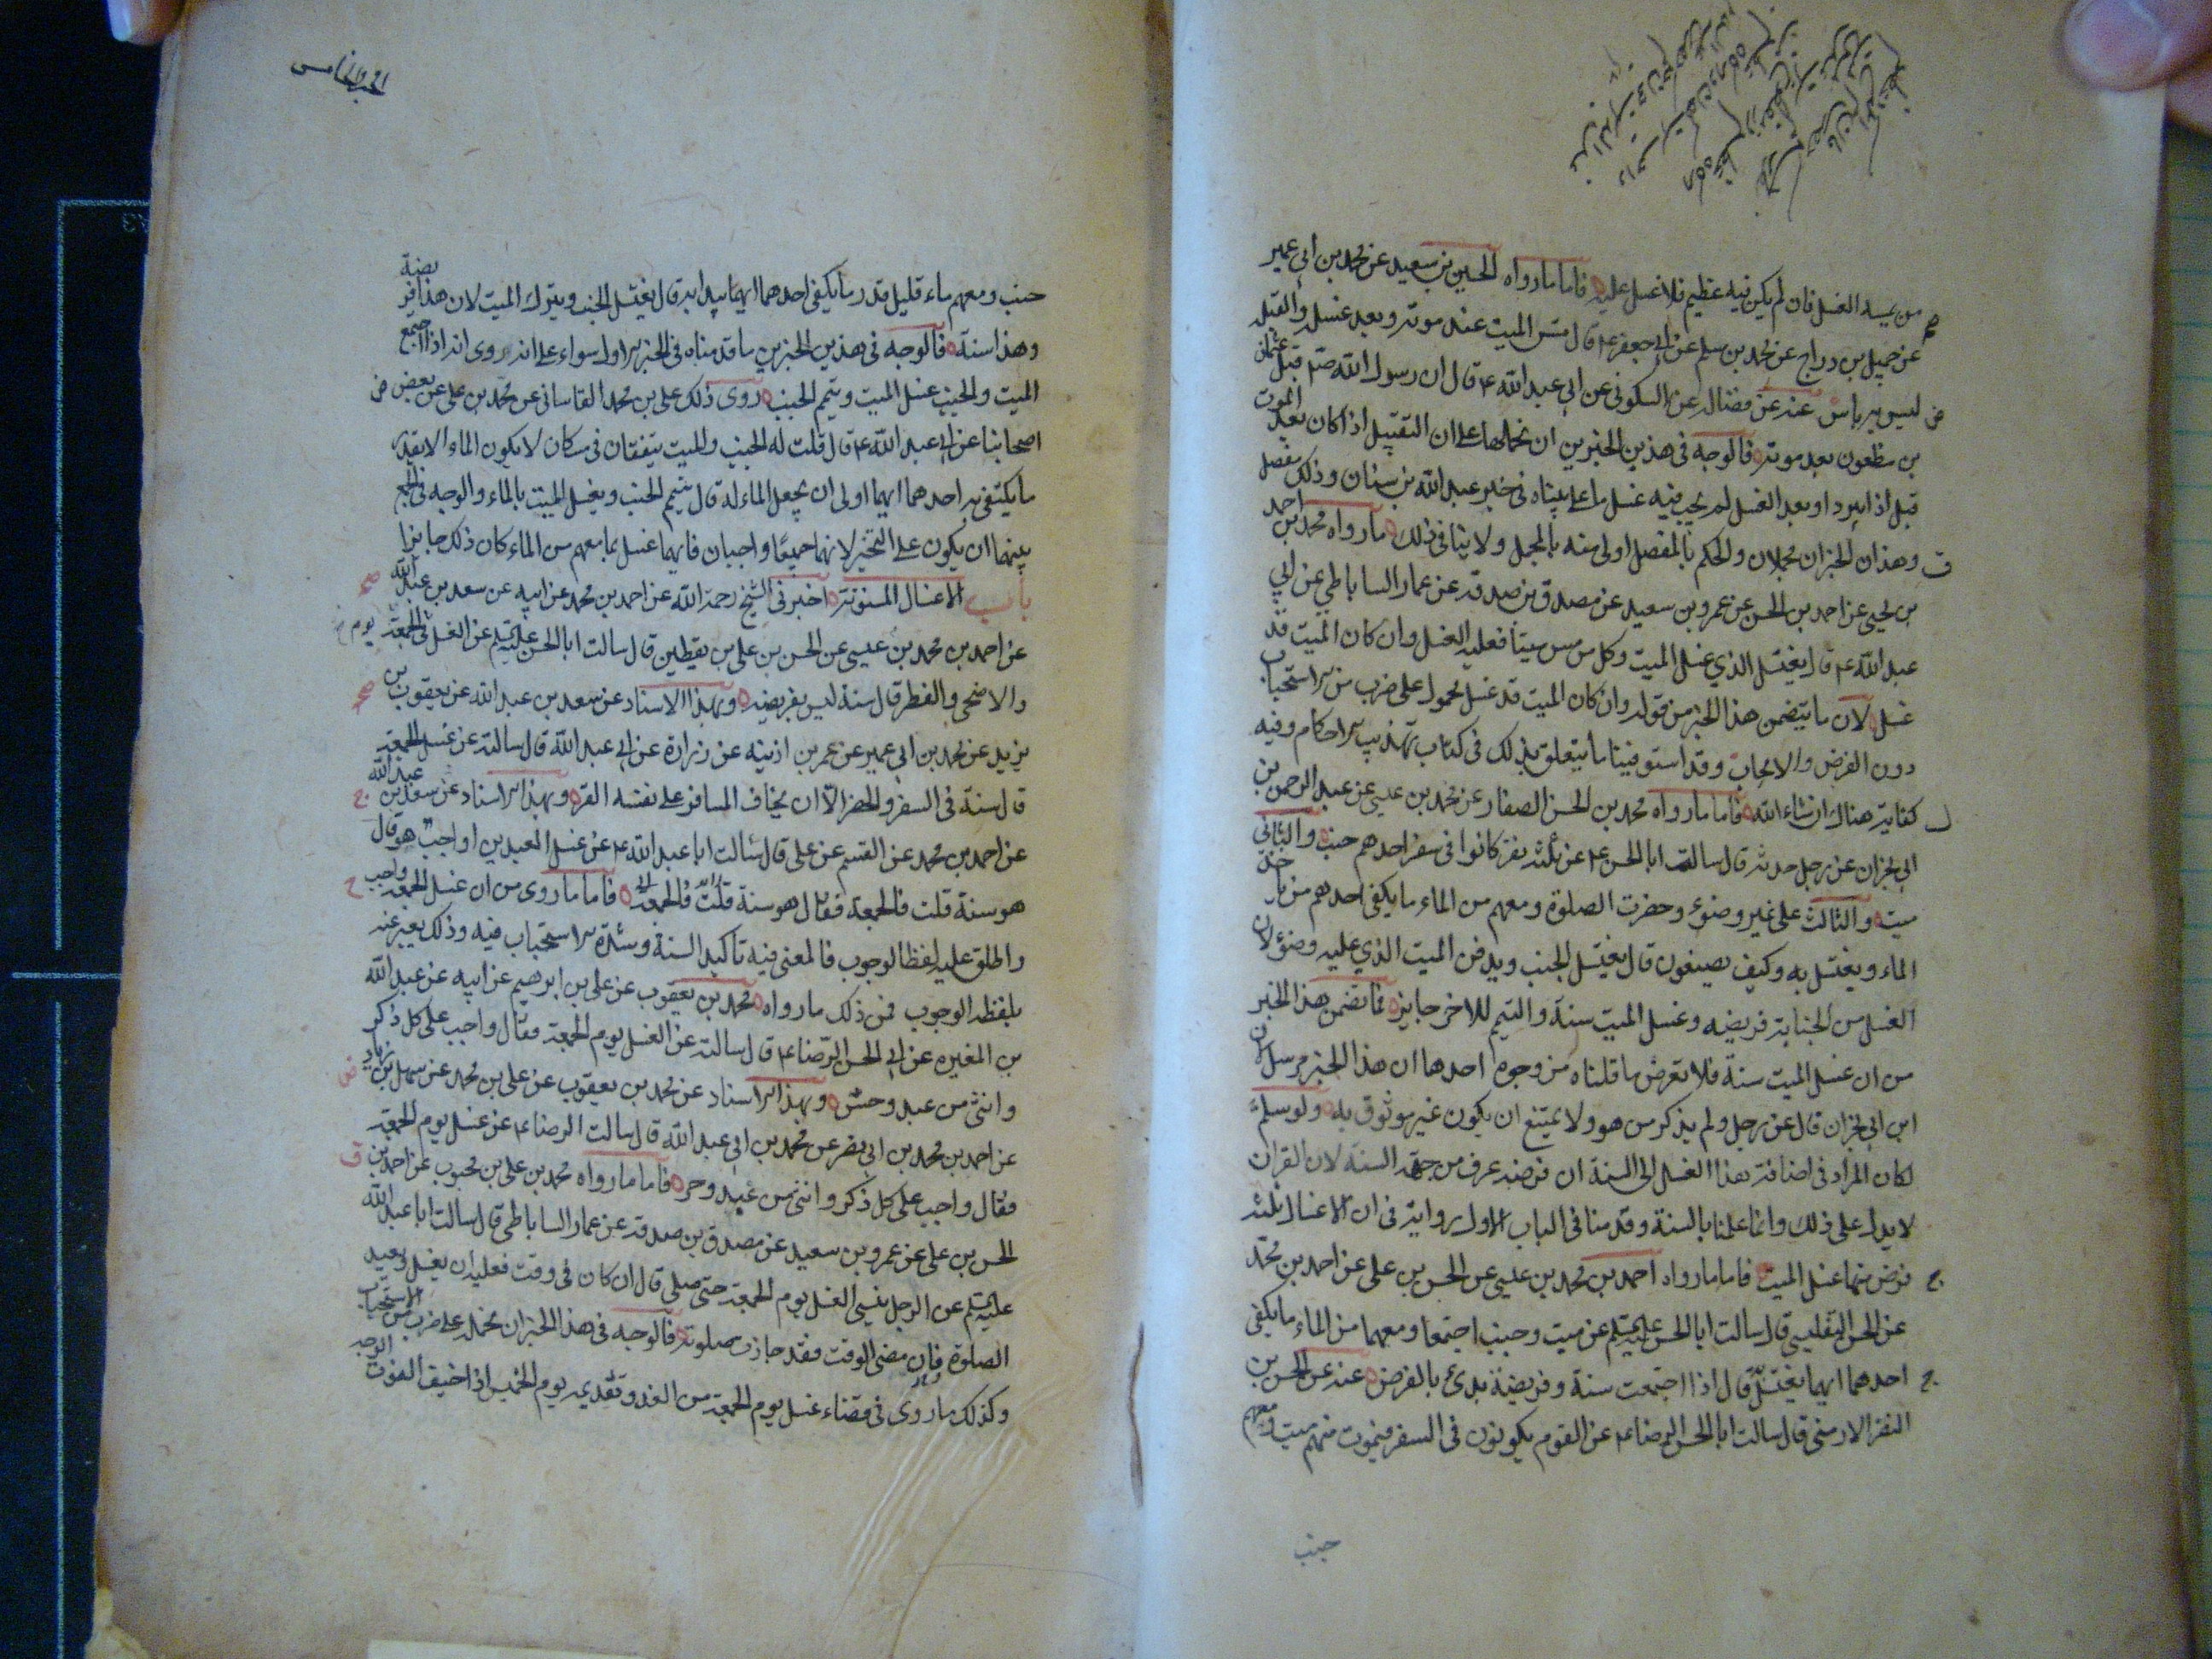 من يمسه الغسل فان لم يكن فيه عظم فلا غسل عليه فاما ما رواه الحسين بن سعيد عن محمد بن ابي عمير
عن جميل بن دراج عن محمد بن مسلم عن ابي جعفر ع قال مس الميت عند موته وبعد غسله والقبلة
ليس به باس عنه عن فضالة عن السكوني عن ابي عبد الله ع قال ان رسول الله ص قبل عثمان
بن مظعون بعد موته فالوجه في هذين الخبرين ان نحملهما على ان التقبيل اذا كان بعد الموت
قبل اذ ابرد او بعد الغسل لم يجب فيه غسل ما على بيناه في خبر عبد الله بن سنان وذلك مفصل
وهذان الخبران مجملان والحكم بالمفصل اولى منه بالمجمل ولا ينافي ذلك ما رواه محمد بن احمد
بن يحيى عن احمد بن الحسن عن عمرو بن سعيد عن مصدق بن صدقة عن عمار الساباطي عن ابي
عبد الله ع قال يغتسل الذي غسل الميت وكل من مس ميتا فعليه الغسل وان كان الميت قد
غسل لان ما يتضمن هذا الخبر من قوله وان كان الميت قد غسل محمول على ضرب من الاستحباب
دون الفرض والايجاب وقد استوفينا ما يتعلق بذلك في كتاب تهذيب الاحكام وفيه
كفاية هناك ان شاء الله فاما ما رواه محمد بن الحسن الصفار عن محمد بن عيسى عن عبد الرحمن بن
ابي نجران عن رجل حدثه قال سالت ابا الحسن ع عن ثلثة نفر كانوا في سفر احدهم جنب والثاني
ميت والثالث على غير وضوء وحضرت الصلوة ومعهم من الماء ما يكفي احدهم من ياخذ
الماء ويغتسل به وكيف يصنعون قال يغتسل الجنب ويدفن الميت الذي عليه وضوء لان
الغسل من الجنابة فريضه وغسل الميت سنة والتيمم للاخر جايز فما تضمن هذا الخبر
من ان غسل الميت سنة فلا تعرض ما قلناه من وجوه احدها ان هذا الخبر مرسل لان
ابن ابي نجران قال عن رجل ولم يذكر من هو ولا يمتنع ان يكون غير موثوق به ولو سلم
لكان المراد في اضافة هذا الغسل الى السنة ان فرضه عرف من جهة السنة لان القران
لا يدل على ذلك وانما علمنا بالسنة وقد منا في الباب الاول رواية في ان الاغسال ثلثة
فرض منها غسل الميت فاما ما رواه احمد بن محمد بن عيسى عن الحسن بن علي عن احمد بن محمد
عن الحسن التفليسي قال سالت ابا الحسن عليه السلم عن ميت وجنب اجتمعا ومعهما من الماء ما يكفي
احدهما ايهما يغتسل قال اذا اجتمعت سنة وفريضة بدئ بالفرض عنه عن الحسن بن
النضر الارمني قال سالت ابا الحسن الرضا ع عن القوم يكونون في السفر فيموت منهم ميت ومعهم
جنب
الجزو الخامس
جنب ومعهم ماء قليل قدر ما يكفي احدهما ايهما يبدا به قال يغتسل الجنب ويترك الميت لان هذا فريضة
وهذا سنة فالوجه في هذين الخبرين ما قدمناه في الخبر الاول سواء على انه روى انه اذا اجتمع
الميت والجنب غسل الميت وتيمم الجنب روى ذلك علي بن محمد القاساني عن محمد بن علي عن بعض
اصحابنا عن ابي عبد الله ع قال قلت له الجنب والميت يتفقان في مكان لا يكون الماء الا بقدر
ما يكتفي به احدهما ايهما اولى ان يجعل الماء له قال يتيمم الجنب ويغسل الميت بالماء والوجه في الجمع
بينهما ان يكون على التخير لانهما جميعا واجبان فايهما غسل بما معهم من الماء كان ذلك جائزا
باب الاغسال المسنونة اخبرني الشيخ رحمة الله عن احمد بن محمد عن ابيه عن سعد بن عبد الله
عن احمد بن محمد بن عيسى عن الحسن بن علي بن يقطين قال سالت ابا الحسن عليه السلم عن الغسل في الجمعة
والاضحى والفطر قال سنة ليس بفريضه وبهذا الاسناد عن سعد بن عبد الله عن يعقوب بن
يزيد عن محمد بن ابي عمير عن عمر بن اذينه عن زرارة عن ابي عبد الله قال سالته عن غسل الجمعة
قال سنة في السفر والحضر الا ان يخاف المسافر على نفسه القر وبهذا الاسناد عن سعد بن عبد الله
عن احمد بن محمد عن القسم عن علي قال سئالت ابا عبد الله ع عن غسل العيدين اواجب هو قال
هو سنة قلت فالجمعة فقال هو سنة قلت فالجمعة فاما ما روى من ان غسل الجمعة واجب
واطلق عليه لفظ الوجوب فالمعنى فيه تاكيد السنة وشدة الاستحباب فيه وذلك يعبر عنه
بلفظه الوجوب فمن ذلك ما رواه محمد بن يعقوب عن علي بن ابرهيم عن ابيه عن عبد الله
بن المغيره عن ابي الحسن الرضا ع قال سالته عن الغسل يوم الجمعة فقال واجب على كل ذكر
وانثى من عبد وحر وبهذا الاسناد عن محمد بن يعقوب عن علي بن محمد عن سهل بن زياد
عن احمد بن محمد بن ابي نصر عن محمد بن ابي عبد الله قال سالت الرضا ع عن غسل يوم الجمعة
فقال واجب على كل ذكر وانثى من عبد وحر فاما ما رواه محمد بن علي بن محبوب عن احمد بن
الحسن بن علي عن عمرو بن سعيد عن مصدق بن صدقة عن عمار الساباطي قال سالت ابا عبد الله
عليه السلم عن الرجل ينسى الغسل يوم الجمعة حتى صلى قال ان كان في وقت فعليه ان يغسل ويعيد
الصلوة فان مضى الوقت فقد جازت صلوته فالوجه في هذا الخبر ان نحمله على ضرب من الاستحباب
وكذلك ما روى في قضاء غسل يوم الجمعة من الغد وتقديمه يوم الخميس اذا خيف الفوت الوجه